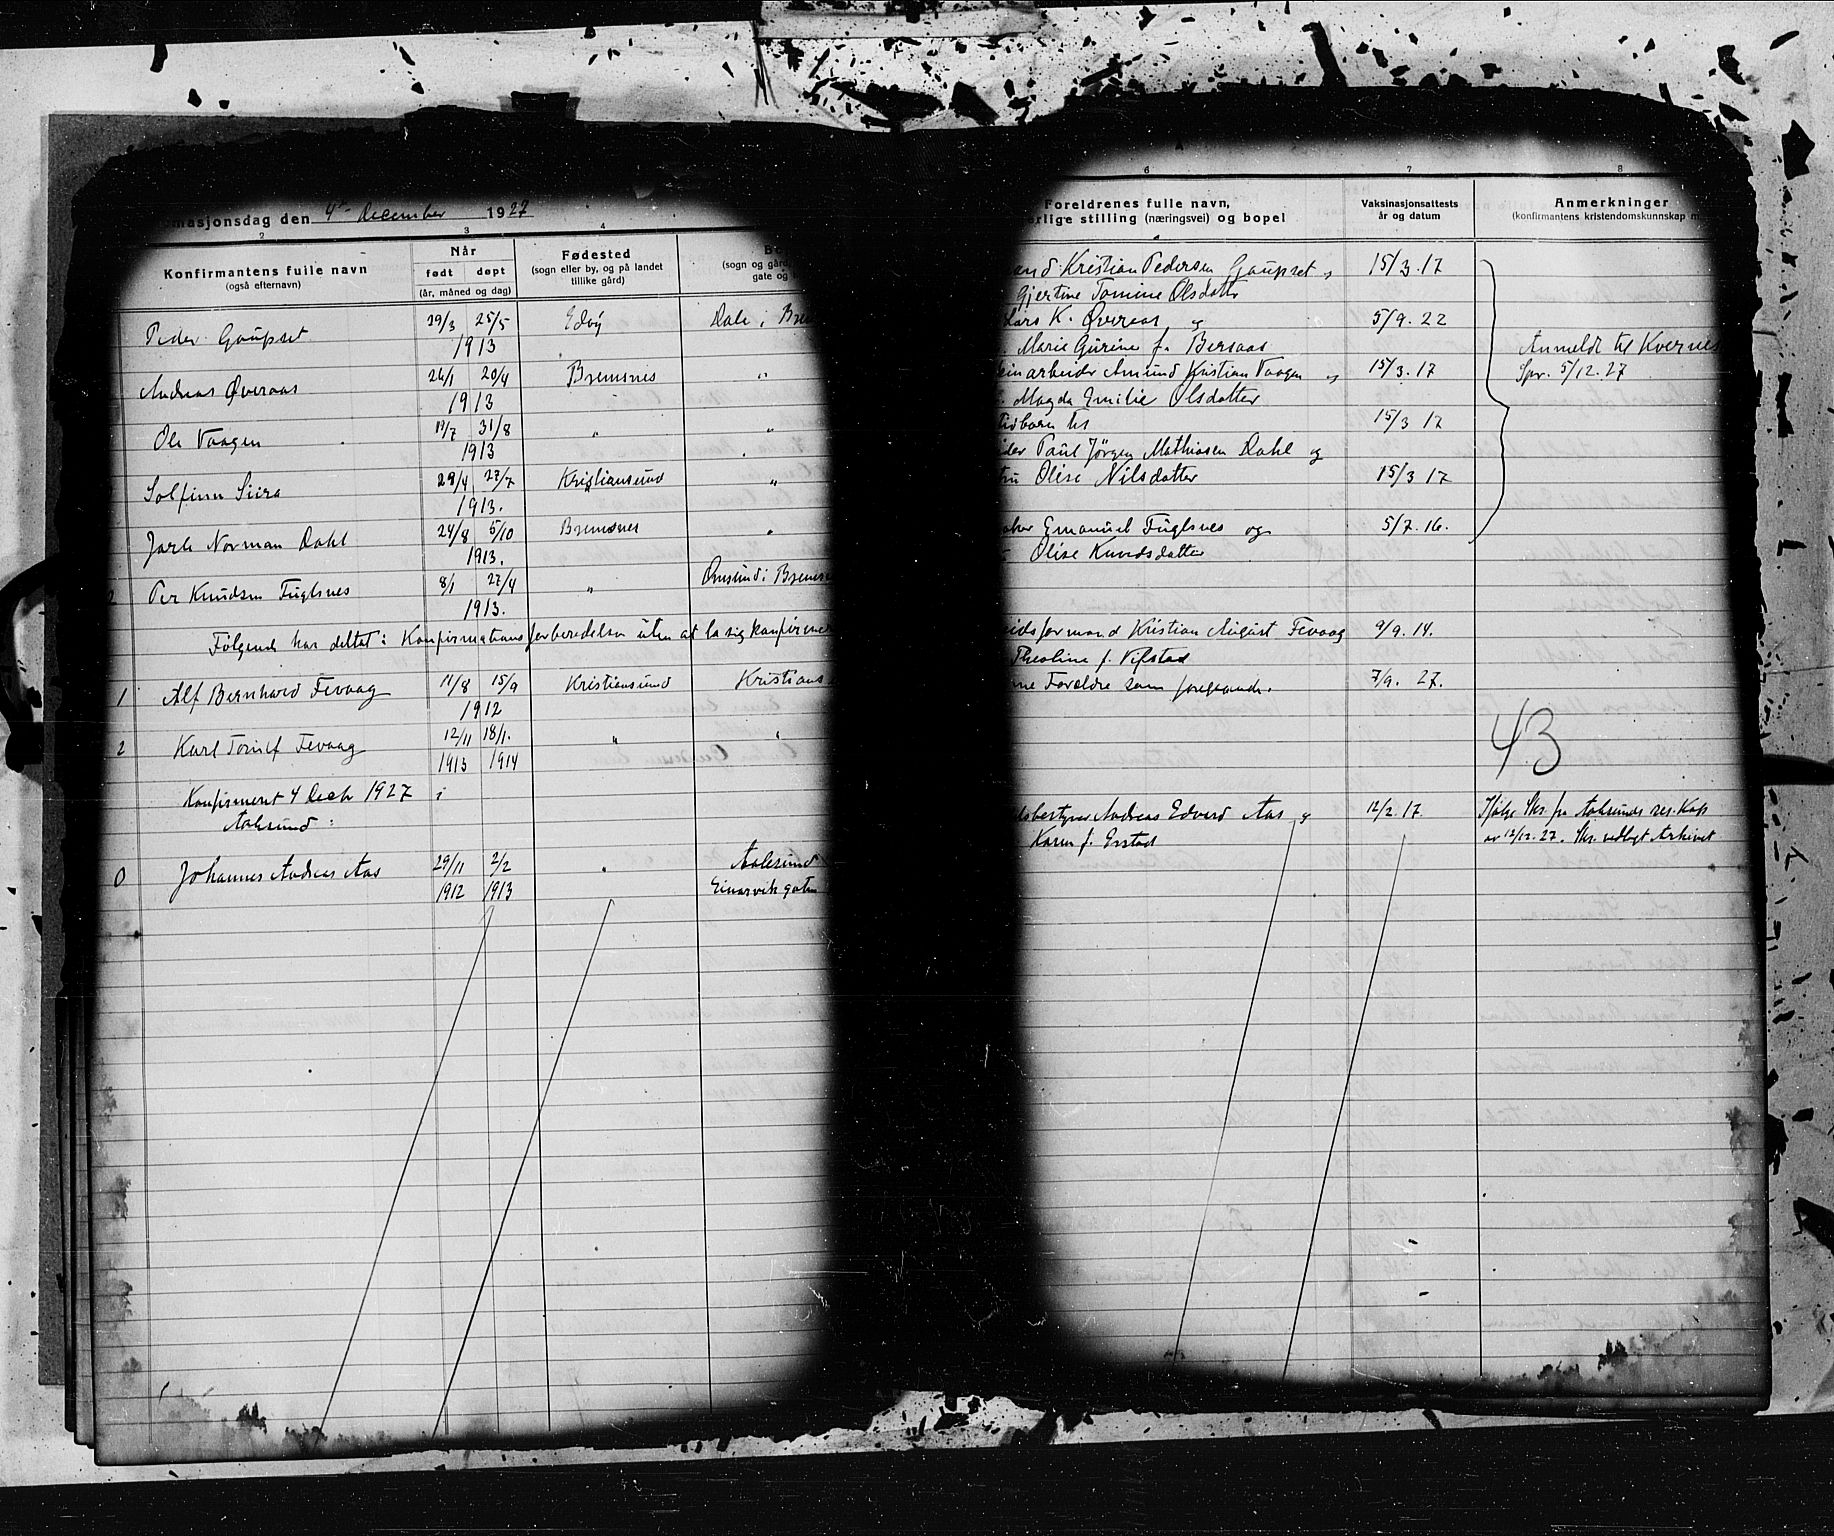 masjonsdag den 4de December 1927
2 3 4
Konfirmantens fulle navn
(også efternavn)
Når
født døpt
(år, måned og dag)
Fødested
(sogn eller by, og på landet
tillike gård)
(sogn og gård,
gate og
Peder Gaupset 29/3 25/5 Edöy Dale i
1913
Andreas Øveraas 26/1 20/4 Bremsnes "
1913
Ole Vaagen 19/7 31/8 " "
1913
Solfinn Siira 29/4 27/7 Kristiansund "
1913.
Jarle Norman Dahl 24/8 5/10 Bremsnes "
1913.
Per Knudsen Fuglsnes 8/1 27/4 " Omsund i
1913.
Følgende har deltat i Konfirmationsforberedelsen uten at la sig konfirmere
1 Alf Bernhard Fevaag 11/8 15/9 Kristiansund
1912
2 Karl Tornlf Fevaag 12/11 18/1. " "
1913 1914
Konfirmeret 4 Decbr 1927 i
Aalesund:
0 Johannes Andreas Aas 29/11 2/2 " Aalesund
1912 1913 Einarvikgaten
6 7 8
Foreldrenes fulle navn,
erlige stilling (næringsvei) og bopel
Vaksinasjonsattests
år og datum
Anmerkninger
(konfirmantens kristendomskunnskap m
Kristian Pedersen Gaupset og 15/3.17
Gjertine Tomine Olsdatter
Lars K. Øveraas og 5/9.22
Marie Gurine f. Bersaas
Anmeldt til Kvernes
Spr. 5/12.27
Amund Kristian Vaagen og 15/3.17
Magda Emilie Olsdatter
15/3 17
Paul Jørgen Mathiasen Dahl og
Olise Nilsdatter 15/3 17
Emanuel Fuglsnes og 5/7.16.
Olise Knudsdatter
Kristian August Fevaag 9/9.14.
Theoline f. Vifstad
Forældre som foregaaende. 7/9. 27.
43
Andreas Edvard Aas og 12/2.17.
Karen f. Erstad
Ifølge Skr. fra Aalesunds res. Kap.
av 12/12.27. Skr. vedlagt Arkivet